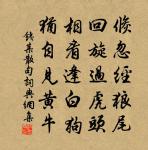 倏忽經狼尾
回旋過虎頭
相看逢白狗
猶自見黃牛
錢某散句詞典網集